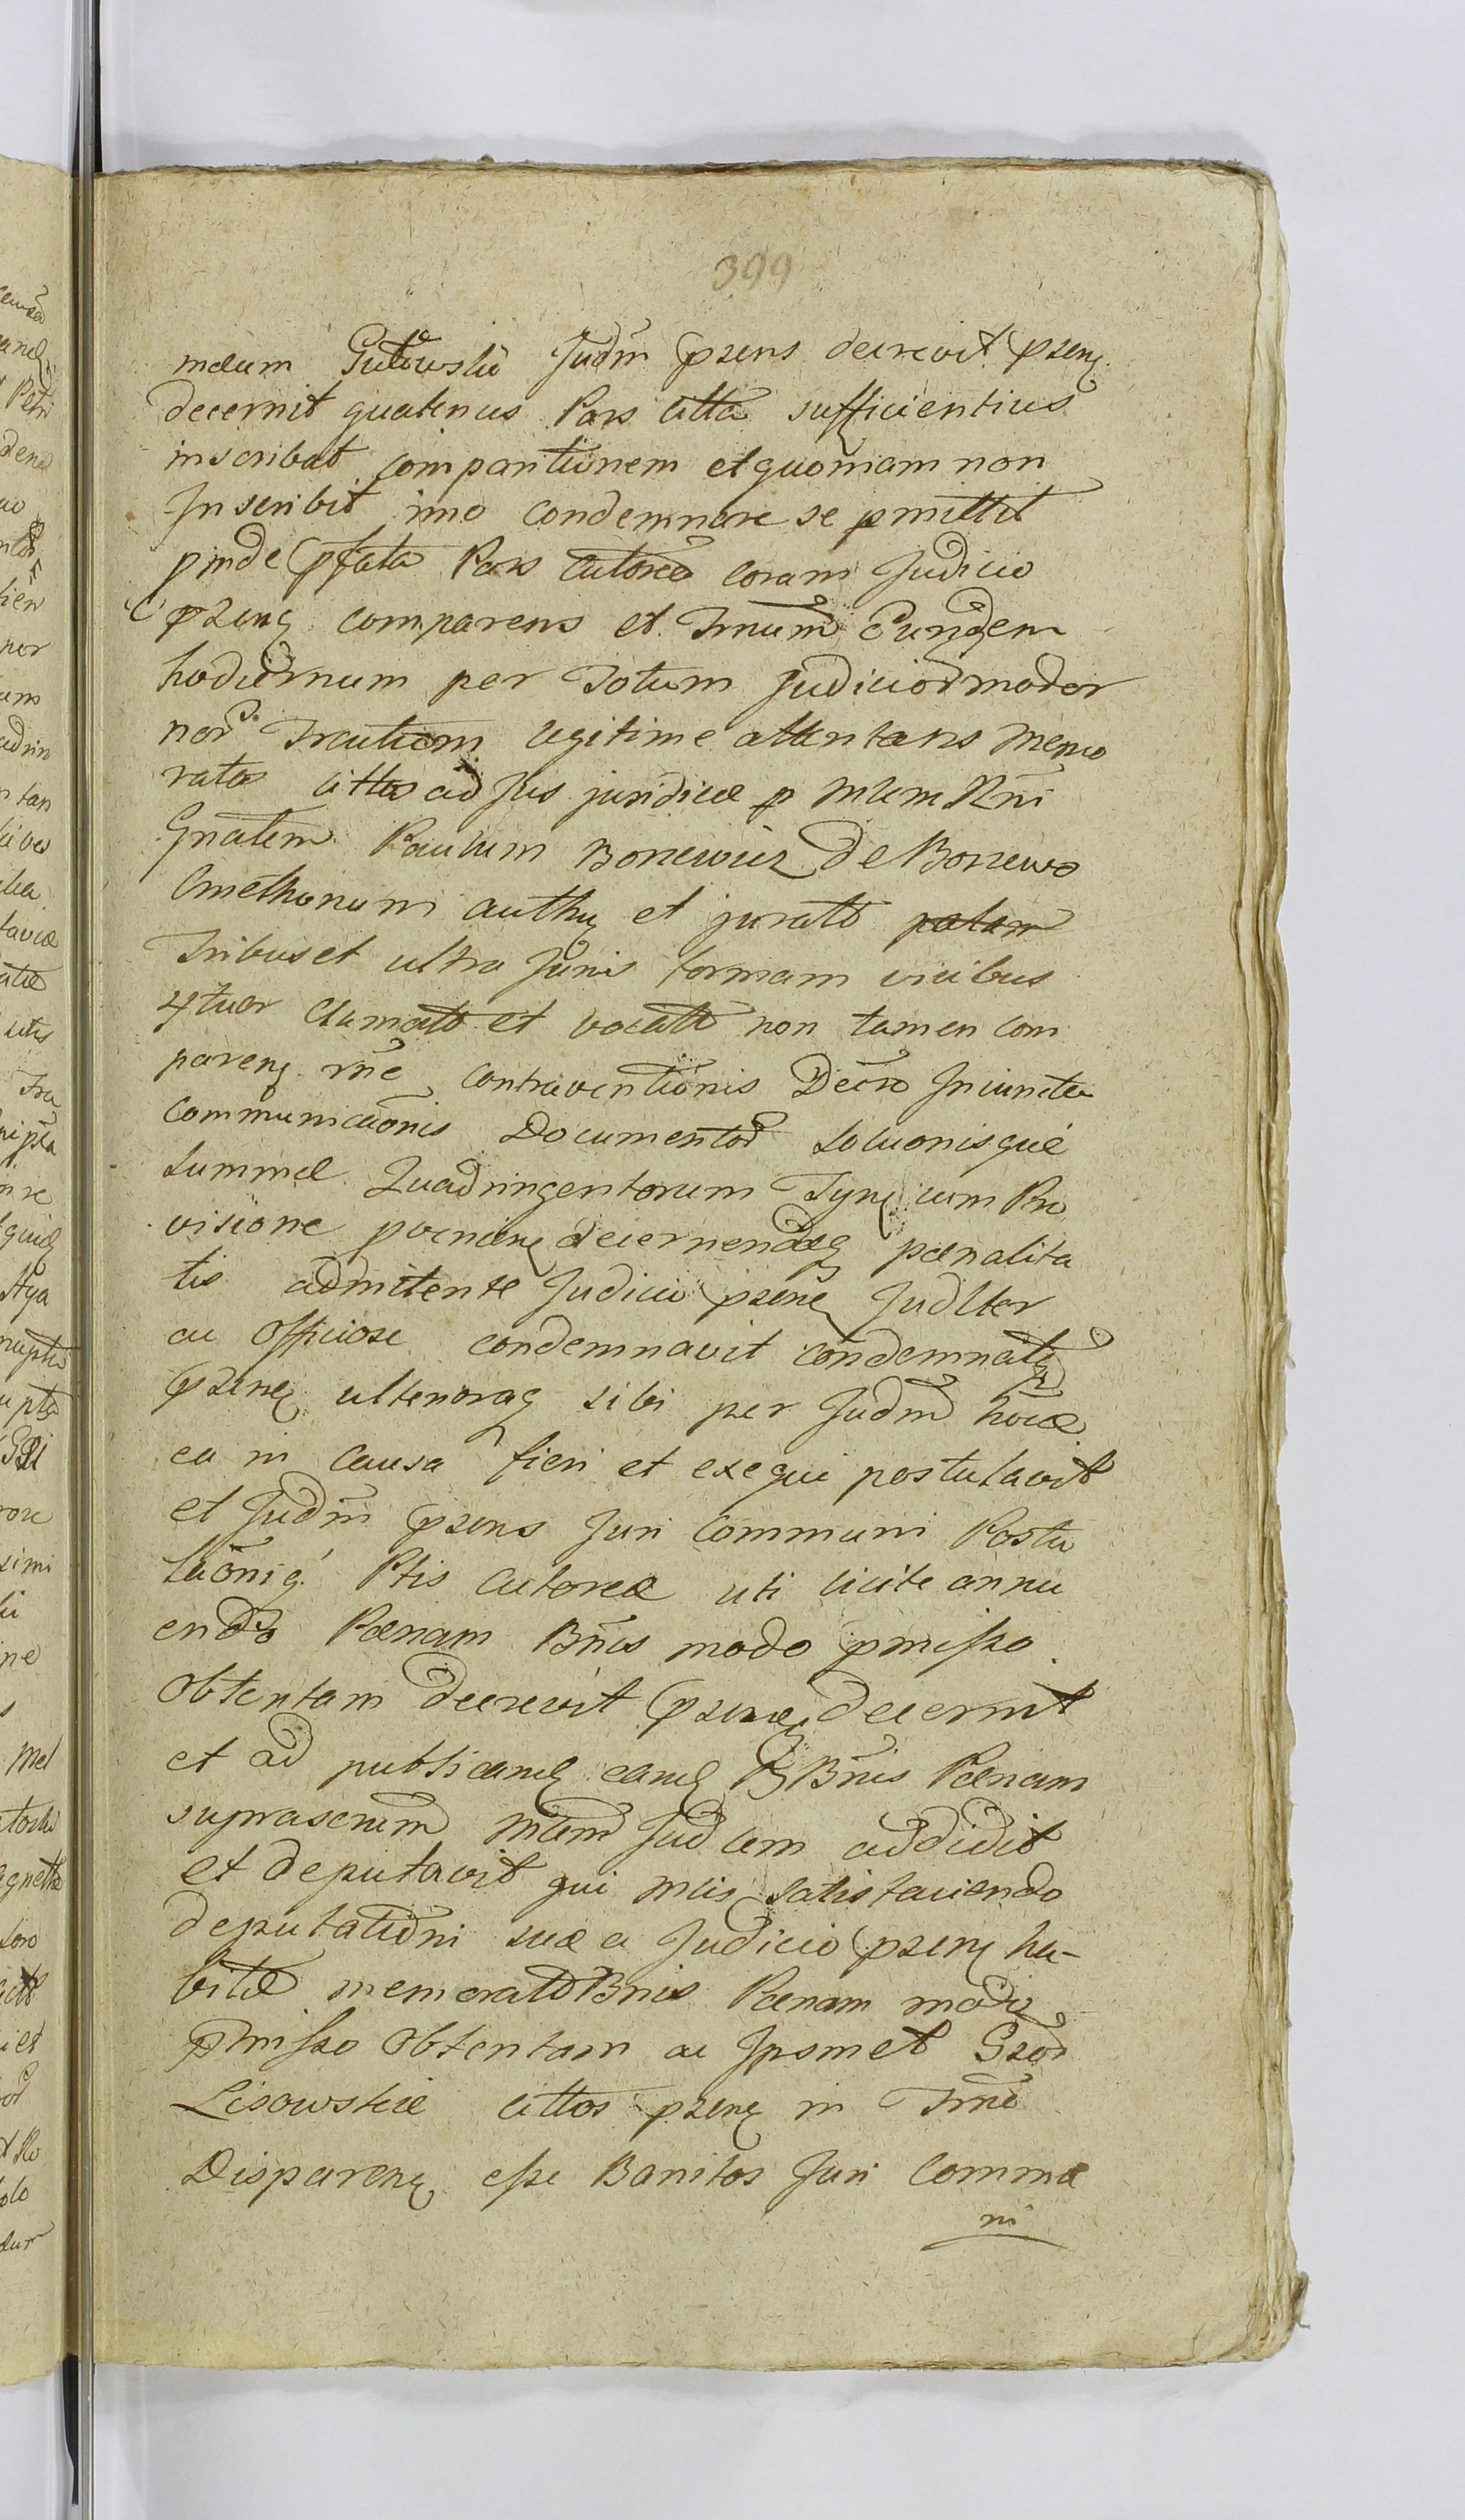 399
mdum Gutowski Judm pzens decrevit pzenq
decernit quatenus Pars citta sufficientius
inscribat comparitionem et quoniam non
Inscribit imo condemnare se pmittit
pinde pfata Pars Actorea coram Judicio
pzenq comparens et Trnum Eundem
hodiernum per Totum Judicior moder
nor Tractum legitime attentans memo
ratos cittos ad Jus juridice p Mlem Rni
Gnalem Paulum Boniewicz de Boniewo
Cmethonum authq et jurato
Tribus et ultra Juris formam vicibus
4tuor clamatos et vocatos non tamen com
parenq rne contraventionis Decro Iniuncta
communicaonis Documentor soluonisque
summae Quadringentorum Tynq cum Pro
visione poenarq decernendaq poenalita
tis admitente Judicio pzenq Judlter
ac Officiose condemnavit condemnatq
pzenq ulterioraq sibi per Judm hocce
ea in Causa fieri et exequi postulavit
et Judm pzens Juri Communi Postu
laoniq Ptis Actoreae uti licite annu
endo Poenam Bnis modo pmisso
Obtentam decrevit pzenq decernit
et ad publicandq eandq Bnis Poenam
suprascrum Mlem Judlem addidit
et deputavit qui Mlis satisfaciendo
deputationi suae a Judicio pzenq ha-
bitae memorato Bnis Poenam modo
pmisso obtentam ac Ipsmet Gzod
Lisowskie cittos pzenq in Trno
Disparenq esse Banitos Juri Commu
ni